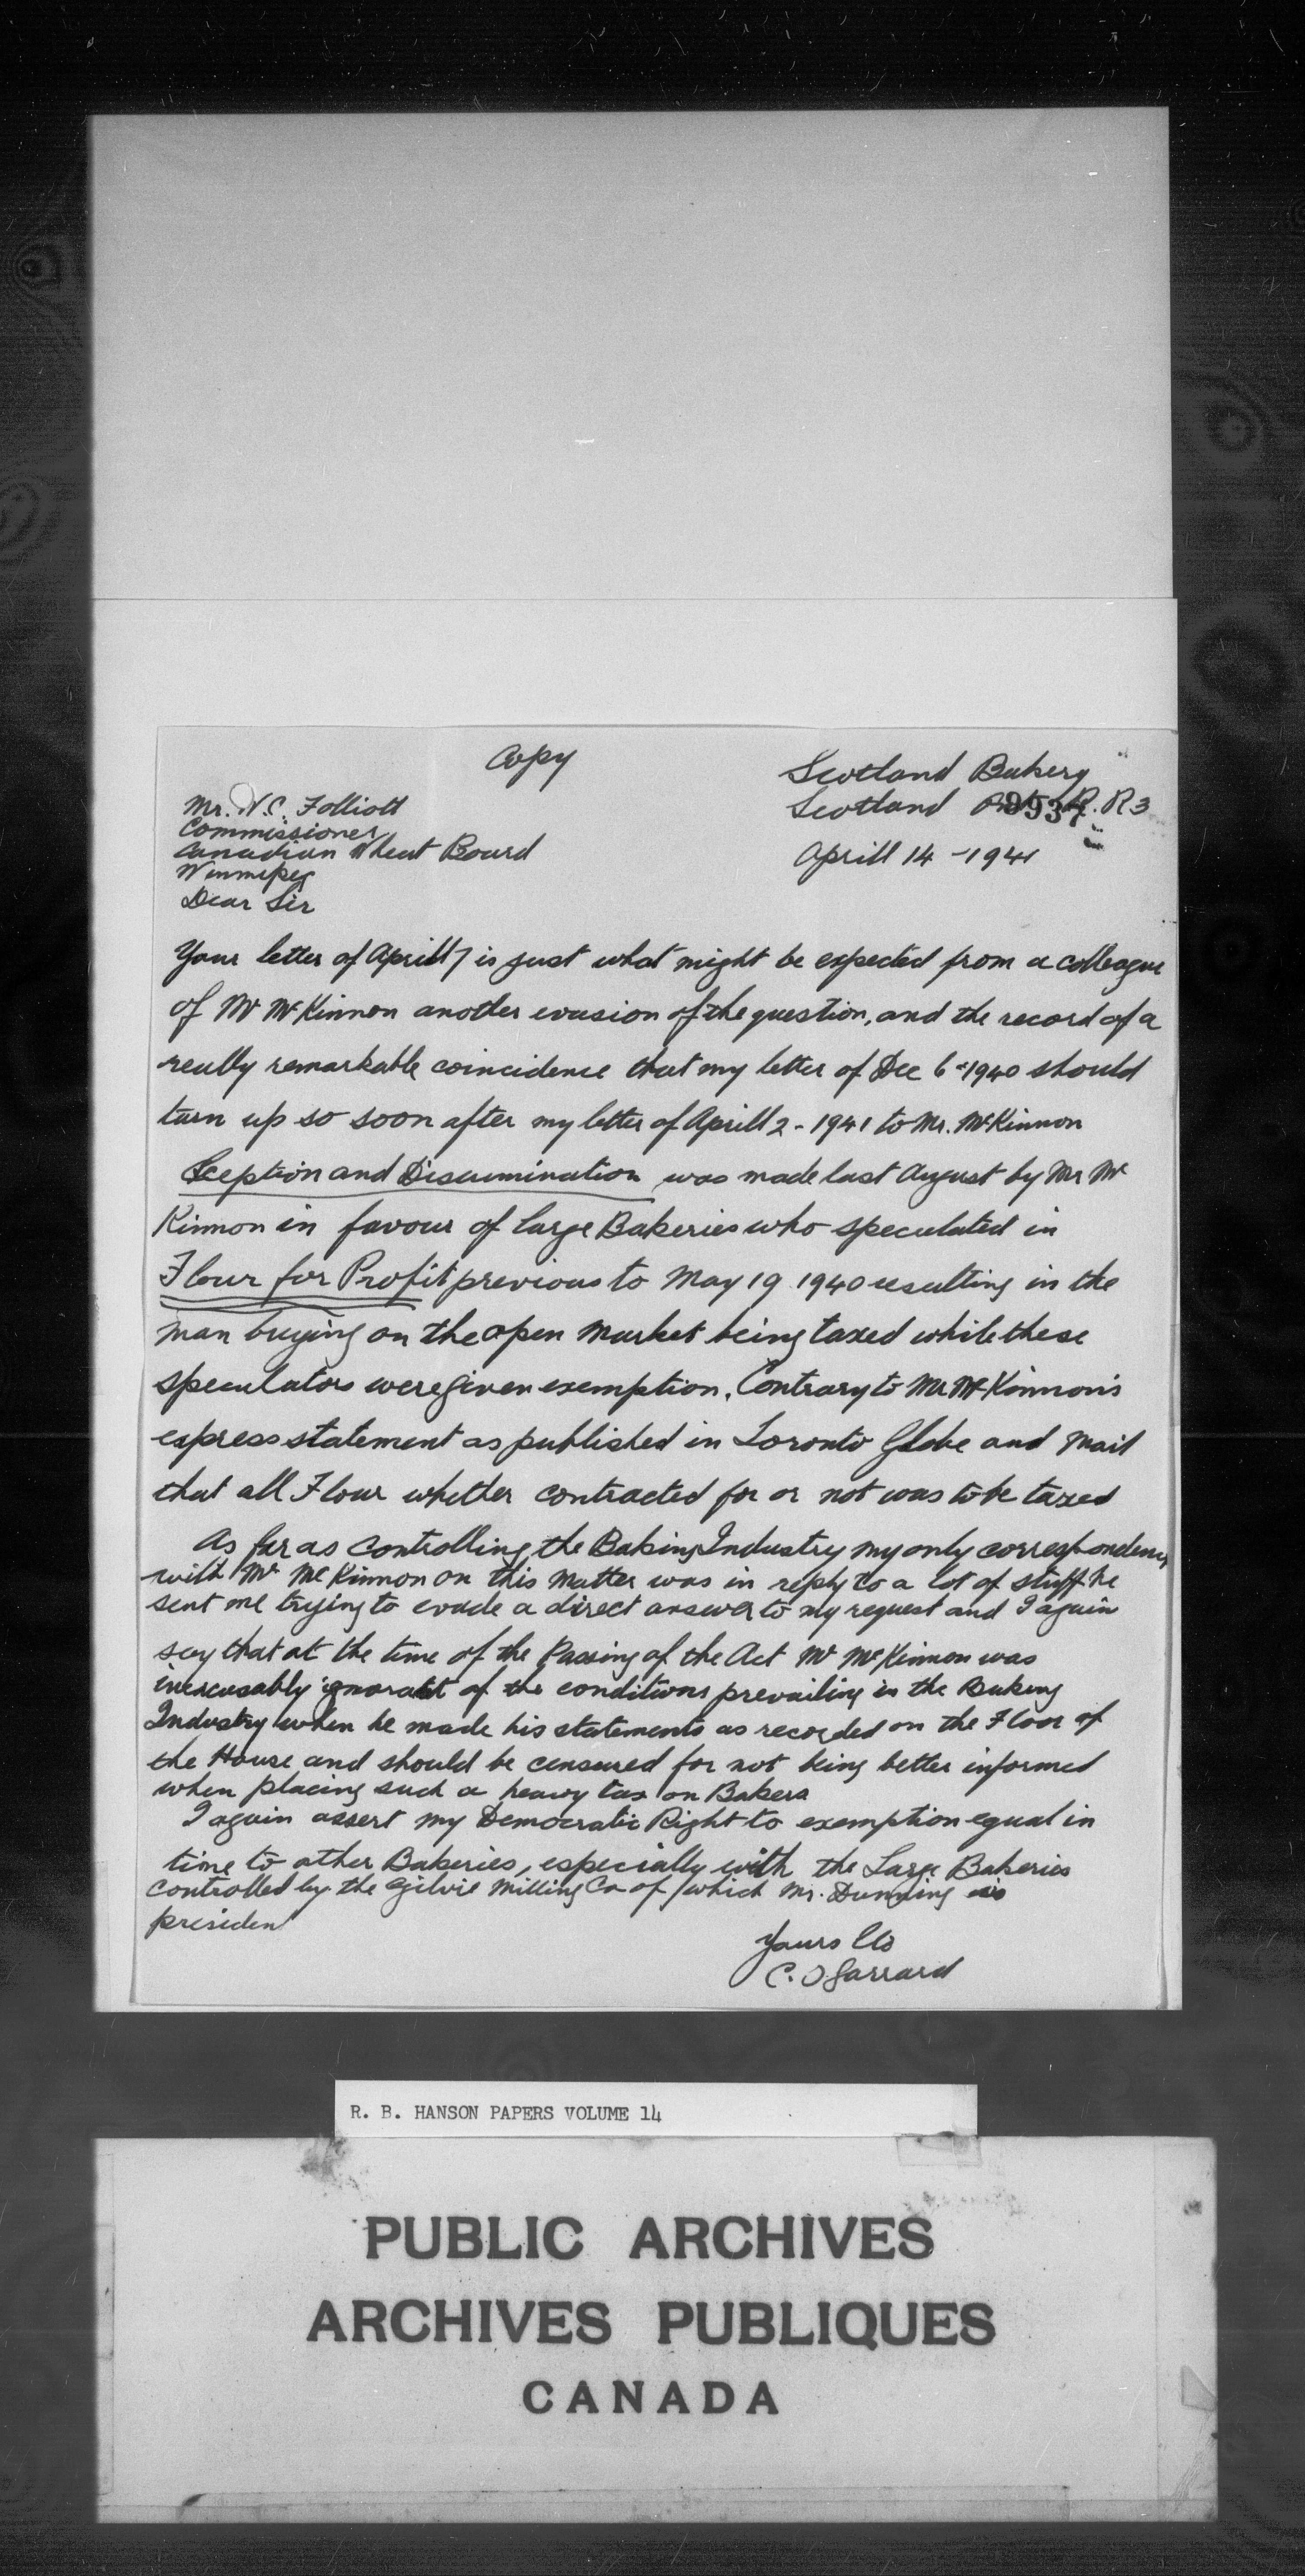 Copy
Scotland Bakery
Scotland Ont R. R 3
9937
Aprill 14 - 1941
Mr. N.C. Folliott
Commissioner
Canadian Wheat Board
Winnipeg
Dear Sir
Your letter of Aprill 7 is just what might be expected from a colleague
of Mr McKinnon another evasion of the question, and the record of a
really remarkable coincidence that my letter of Dec 6 - 1940 should
turn up so soon after my letter of Aprill 2 - 1941 to Mr. McKinnon
and Discrimination was made last August by Mr Mc
Kinnon in favour of large Bakeries who speculated in
Flour for Profit previous to May 19 1940 resulting in the
man buying on the open Market being taxed while these
speculators were given exemption. Contrary to Mr McKinnon's
express statement as published in Toronto Globe and Mail
that all Flour whether contracted for or not was to be taxed
As far as controlling the Baking Industry my only correspondency
with Mr McKinnon on this Matter was in reply to a lot of stuff he
sent me trying to evade a direct answer to my request and I again
say that at the time of the Passing of the Act Mr McKinnon was
inexcusably ignorant of the conditions prevailing in the Baking
Industry when he made his statements as recorded on the Floor of
the House and should be censured for not being better informed
when placing such a heavy tax on Bakers
I again assert my Democratic Right to exemption equal in
time to other Bakeries, especially with the Large Bakeries
controlled by the Ogilvie Milling Co of which Mr. Dunning is
presiden
Yours Etc
C. O Garrard
R. B. HANSON PAPERS VOLUME 14
PUBLIC ARCHIVES
ARCHIVES PUBLIQUES
CANADA